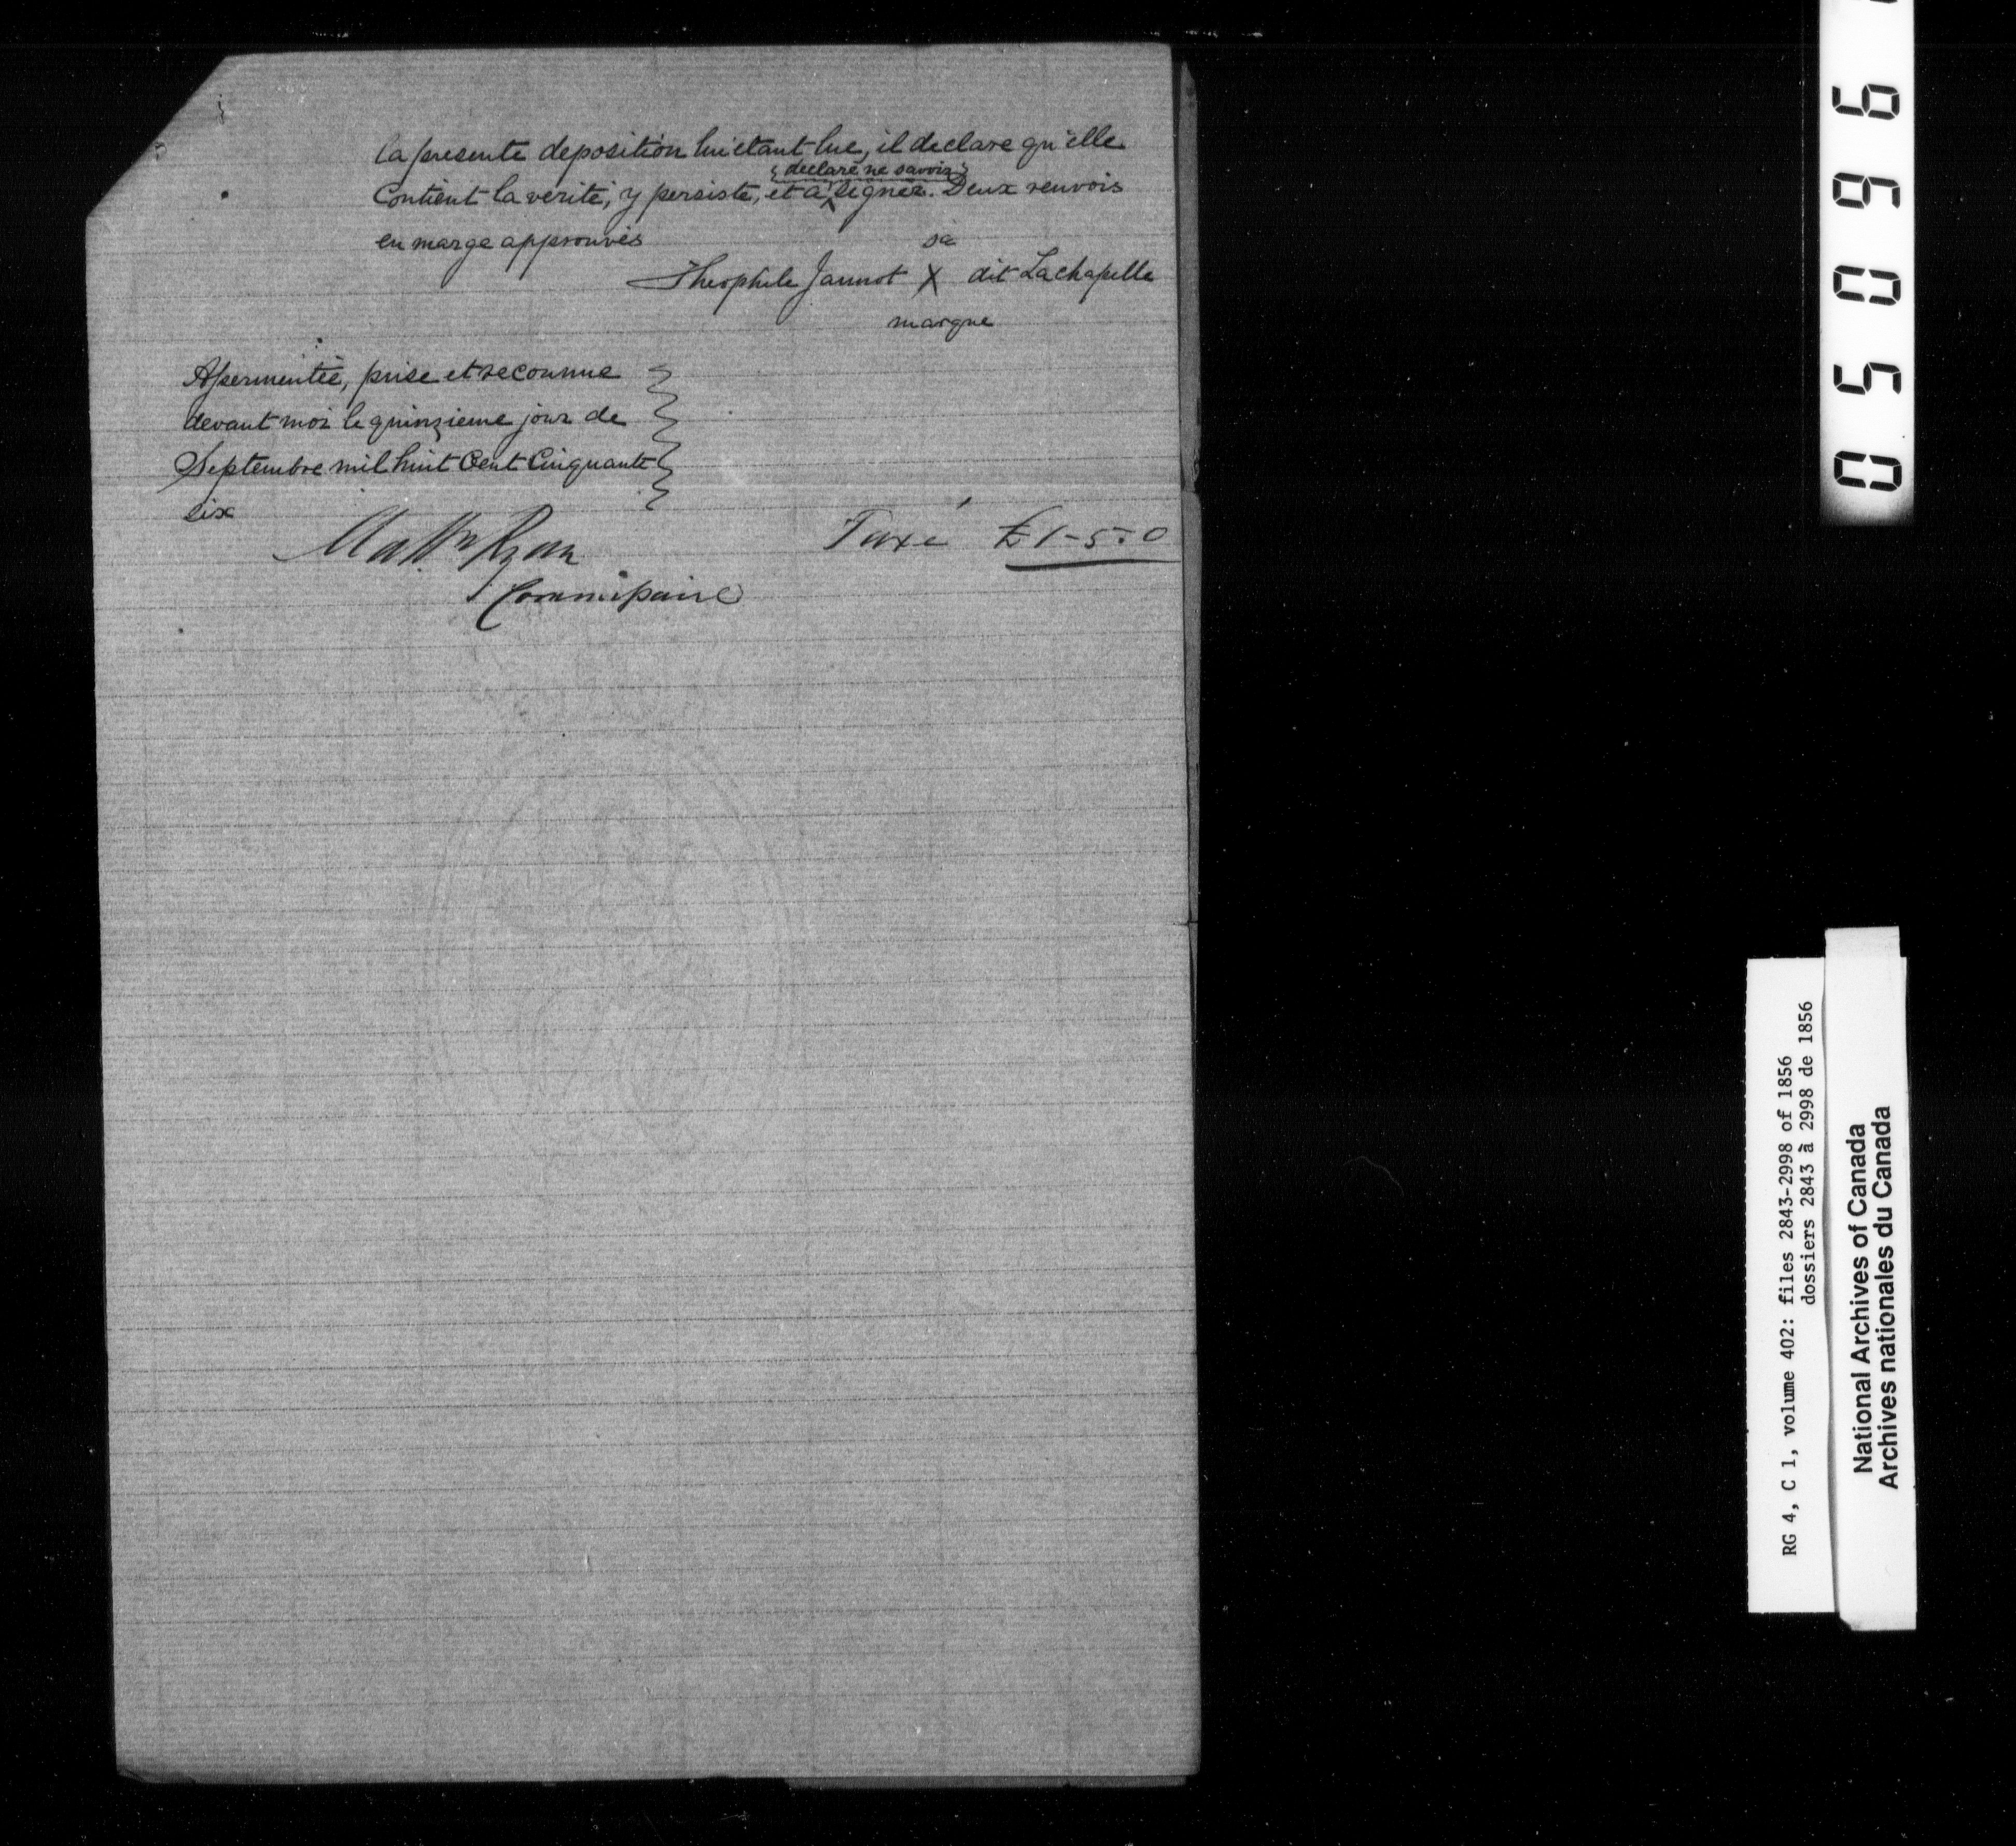 la presente deposition lui etant lue, il declare qu'elle
declaré ne savoir
Contient la verité, y persiste, et a signer. Deux renvois
en marge approuvés
sa
Theophile Jannot X dit Lachapelle
marque
Assermentée, prise et reconnue
devant moi le quinzieme jour de
Septembre mil huit Cent Cinquante
six
Matth Ryan
Commissaire
Taxé £1-5-0
05096
RG 4, C 1, volume 402: files 2843-2998 of 1856
dossiers 2843 à 2998 de 1856
National Archives of Canada
Archives nationales du Canada